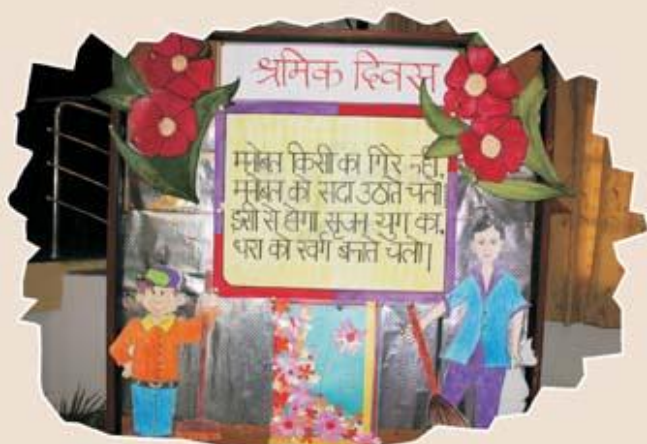 श्रमिक दिवस
मनोबल किसी का गिरे नहीं,
मनोबल को सदा उठाते चलो
इसी से होगा सृजन युग का,
धरा को स्वर्ग बनाते चलो।